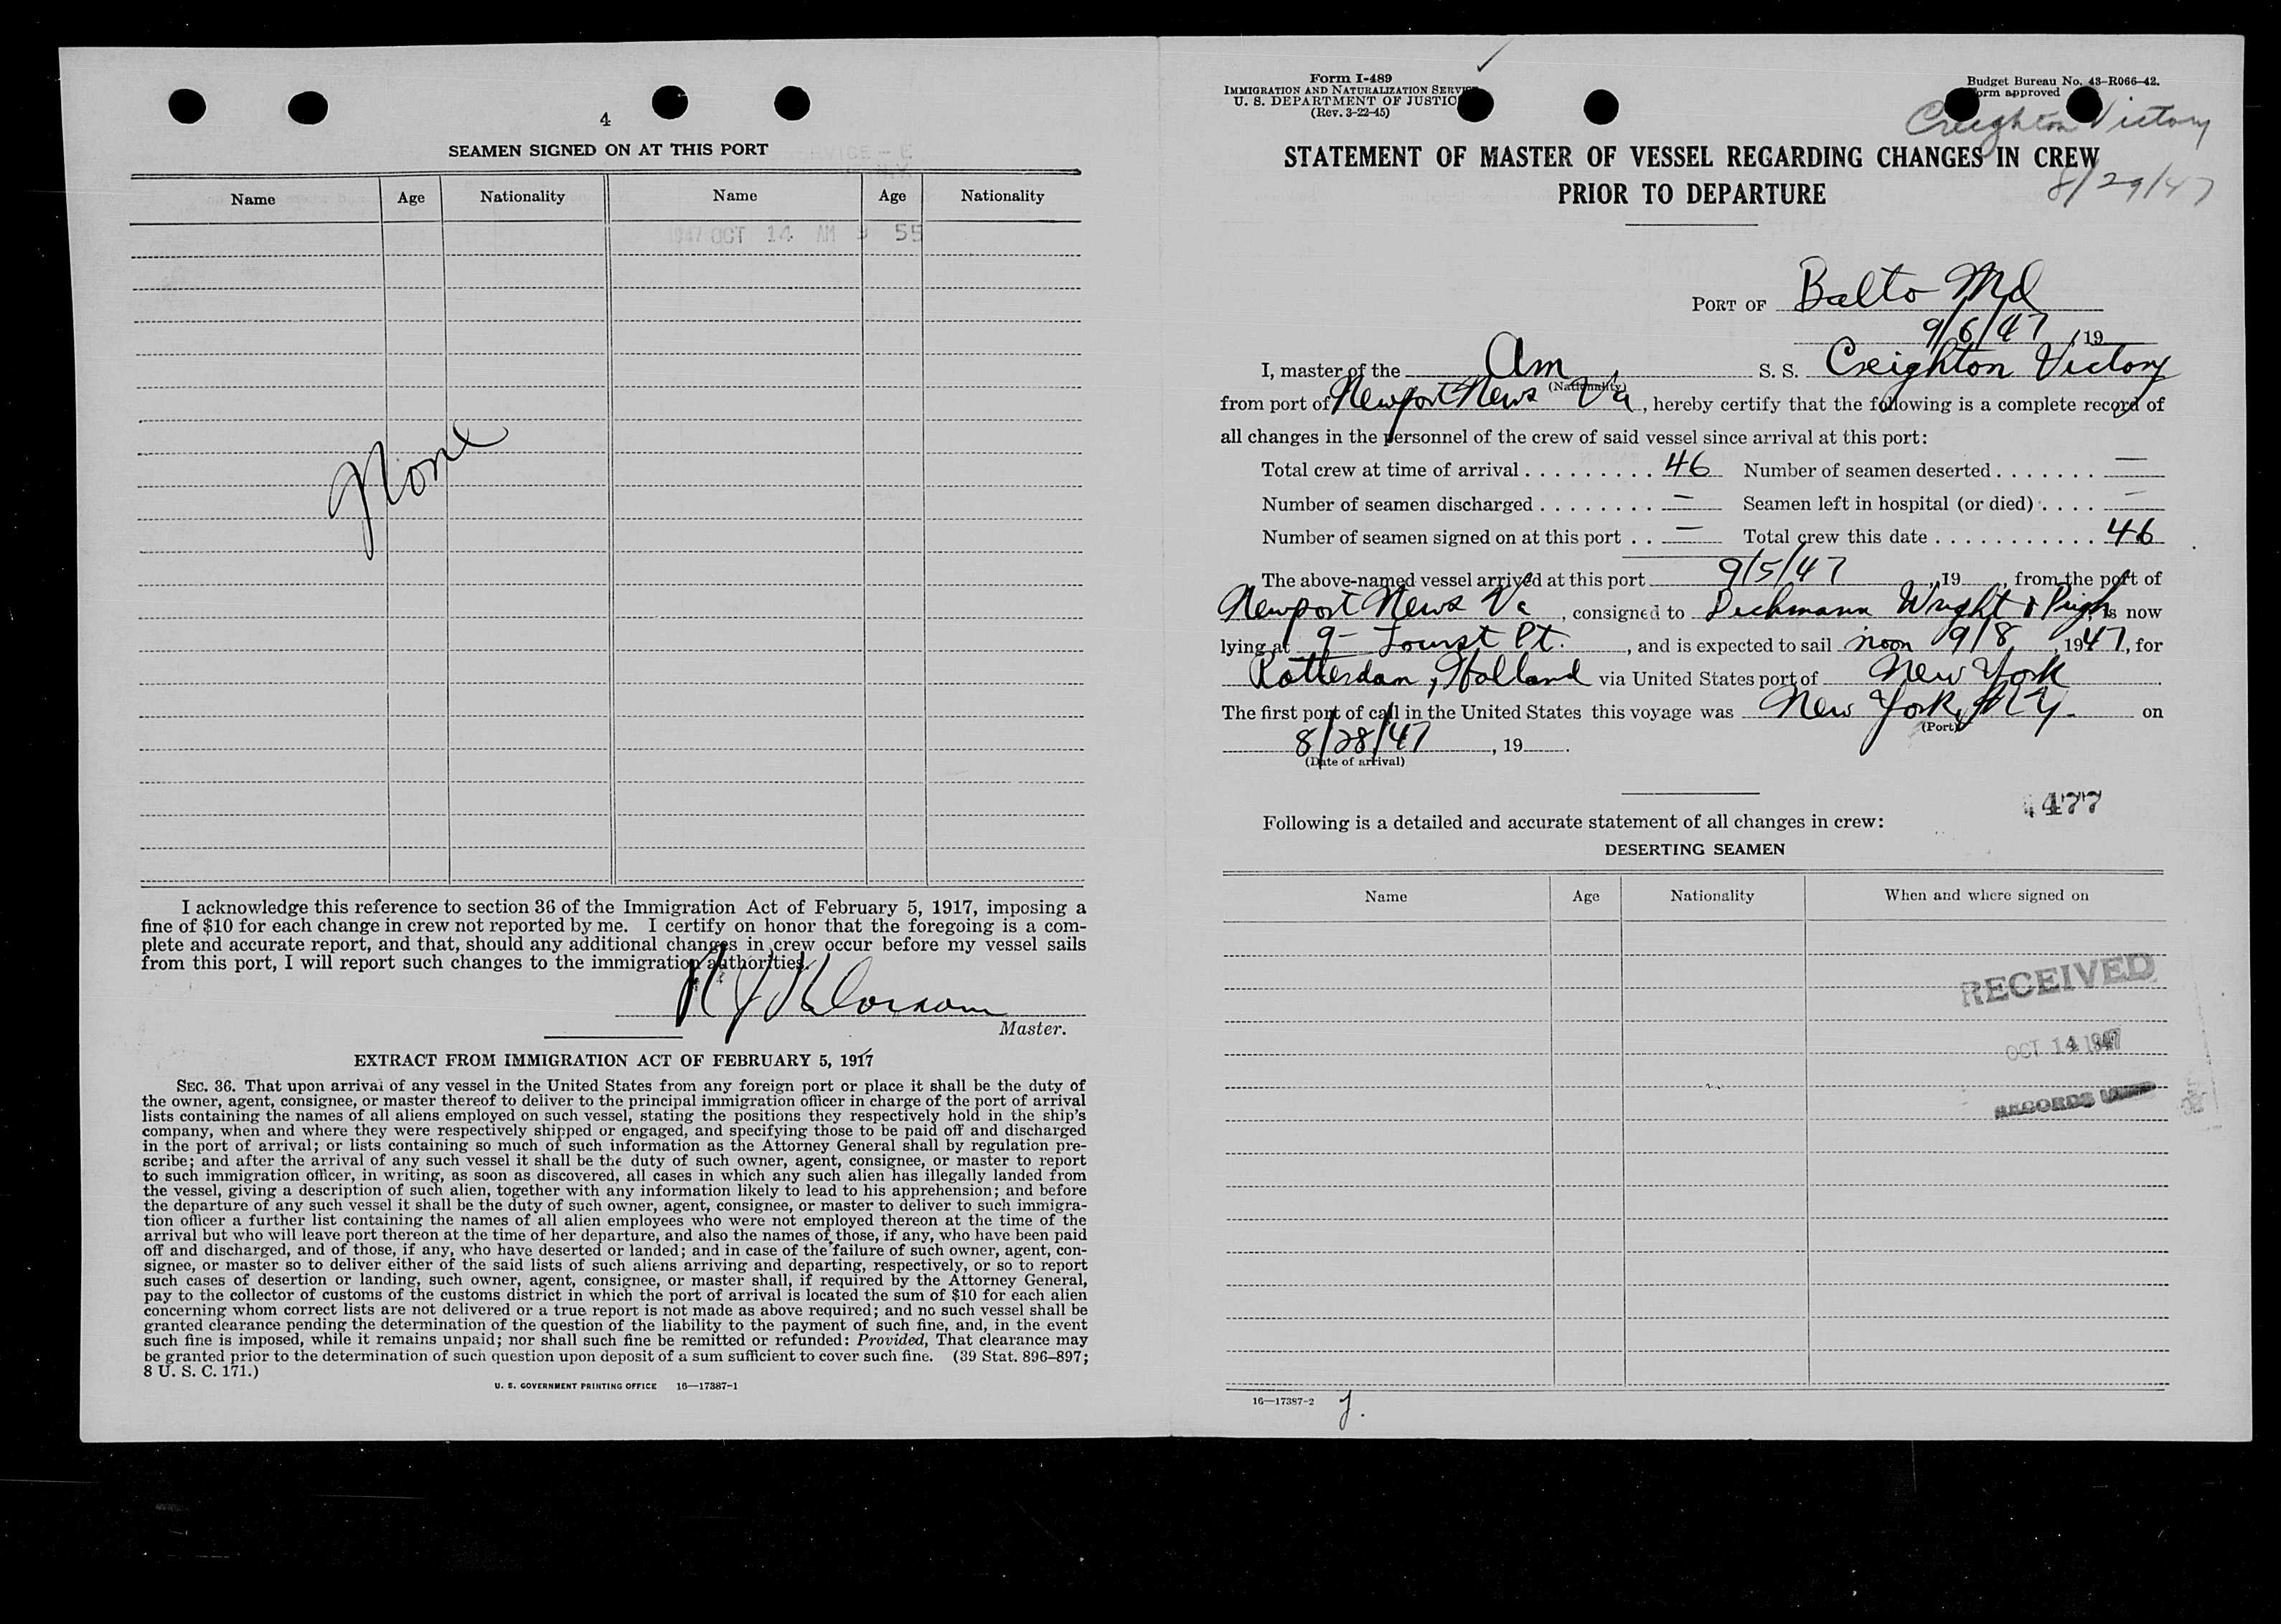 4
SEAMEN SIGNED ON AT THIS PORT
Name Age Nationality Name Age Nationality
1947 OCT 14 AM 9 55
None
I acknowledge this reference to section 36 of the Immigration Act of February 5, 1917, imposing a
fine of $10 for each change in crew not reported by me. I certify on honor that the foregoing is a com-
plete and accurate report, and that, should any additional changes in crew occur before my vessel sails
from this port, I will report such changes to the immigration authorities.
Master.
EXTRACT FROM IMMIGRATION ACT OF FEBRUARY 5, 1917
SEC. 36. That upon arrival of any vessel in the United States from any foreign port or place it shall be the duty of
the owner, agent, consignee, or master thereof to deliver to the principal immigration officer in charge of the port of arrival
lists containing the names of all aliens employed on such vessel, stating the positions they respectively hold in the ship's
company, when and where they were respectively shipped or engaged, and specifying those to be paid off and discharged
in the port of arrival; or lists containing so much of such information as the Attorney General shall by regulation pre-
scribe; and after the arrival of any such vessel it shall be the duty of such owner, agent, consignee, or master to report
to such immigration officer, in writing, as soon as discovered, all cases in which any such alien has illegally landed from
the vessel, giving a description of such alien, together with any information likely to lead to his apprehension; and before
the departure of any such vessel it shall be the duty of such owner, agent, consignee, or master to deliver to such immigra-
tion officer a further list containing the names of all alien employees who were not employed thereon at the time of the
arrival but who will leave port thereon at the time of her departure, and also the names of those, if any, who have been paid
off and discharged, and of those, if any, who have deserted or landed; and in case of the failure of such owner, agent, con-
signee, or master so to deliver either of the said lists of such aliens arriving and departing, respectively, or so to report
such cases of desertion or landing, such owner, agent, consignee, or master shall, if required by the Attorney General,
pay to the collector of customs of the customs district in which the port of arrival is located the sum of $10 for each alien
concerning whom correct lists are not delivered or a true report is not made as above required; and no such vessel shall be
granted clearance pending the determination of the question of the liability to the payment of such fine, and, in the event
such fine is imposed, while it remains unpaid; nor shall such fine be remitted or refunded: Provided, That clearance may
be granted prior to the determination of such question upon deposit of a sum sufficient to cover such fine. (39 Stat. 896–897;
8 U. S. C. 171.)
U. S. GOVERNMENT PRINTING OFFICE 16—17387-1
Form I-489
IMMIGRATION AND NATURALIZATION SERVICE
U. S. DEPARTMENT OF JUSTICE
(Rev. 3-22-45)
Budget Bureau No. 43-R066-42.
Form approved
Creighton Victory
8/29/47
STATEMENT OF MASTER OF VESSEL REGARDING CHANGES IN CREW
PRIOR TO DEPARTURE
PORT OF Balto Md
9/6/47, 19
I, master of the Am S. S. Creighton Victory
(Nationality)
from port of Newport News Va, hereby certify that the following is a complete record of
all changes in the personnel of the crew of said vessel since arrival at this port:
Total crew at time of arrival 46 Number of seamen deserted —
Number of seamen discharged — Seamen left in hospital (or died) —
Number of seamen signed on at this port — Total crew this date 46
The above-named vessel arrived at this port 9/5/47, 19, from the port of
Newport News Va, consigned to Wright & Pugh, is now
lying at 9- Pt., and is expected to sail noon 9/8, 1947, for
Rotterdam, Holland via United States port of New York
The first port of call in the United States this voyage was New York, N.Y. on
(Port)
8/28/47, 19.
(Date of arrival)
4477
Following is a detailed and accurate statement of all changes in crew:
DESERTING SEAMEN
Name Age Nationality When and where signed on
RECEIVED
OCT 14 1947
RECORDS
16—17387-2 J.